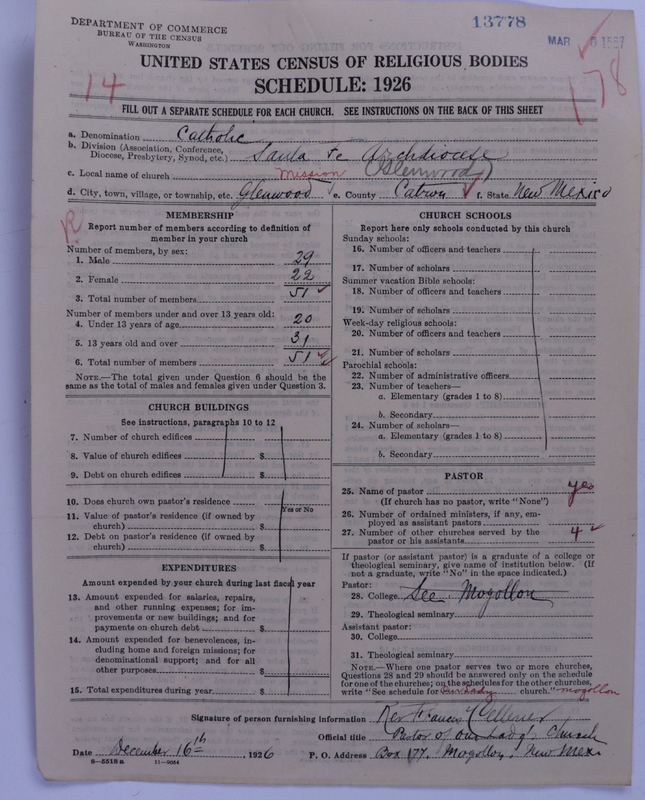 13778
DEPARTMENT OF COMMERCE
BUREAU OF THE CENSUS
WASHINGTON
MAR 5 1927
UNITED STATES CENSUS OF RELIGIOUS BODIES
14
178
SCHEDULE: 1926
FILL OUT A SEPARATE SCHEDULE FOR EACH CHURCH. SEE INSTRUCTIONS ON THE BACK OF THIS SHEET
a. Denomination Catholic
b. Division (Association, Conference, Diocese, Presbytery, Synod, etc.) Santa Fe Archdiocese
c. Local name of church Mission (Glenwood)
d. City, town, village, or township, etc. Glenwood e. County Catron f. State New Mexico
R
MEMBERSHIP
Report number of members according to definition of
member in your church
Number of members, by sex:
1. Male 29
2. Female 22
3. Total number of members 51
Number of members under and over 13 years old:
4. Under 13 years of age 20
5. 13 years old and over 31
6. Total number of members 51
NOTE.—The total given under Question 6 should be the
same as the total of males and females given under Question 3.
CHURCH BUILDINGS
See instructions, paragraphs 10 to 12
7. Number of church edifices
8. Value of church edifices $
9. Debt on church edifices $
10. Does church own pastor's residence
Yes or No
11. Value of pastor's residence (if owned by
church) $
12. Debt on pastor's residence (if owned by
church) $
EXPENDITURES
Amount expended by your church during last fiscal year
13. Amount expended for salaries, repairs,
and other running expenses; for im-
provements or new buildings; and for
payments on church debt $
14. Amount expended for benevolences, in-
cluding home and foreign missions; for
denominational support; and for all
other purposes $
15. Total expenditures during year $
CHURCH SCHOOLS
Report here only schools conducted by this church
Sunday schools:
16. Number of officers and teachers
17. Number of scholars
Summer vacation Bible schools:
18. Number of officers and teachers
19. Number of scholars
Week-day religious schools:
20. Number of officers and teachers
21. Number of scholars
Parochial schools:
22. Number of administrative officers
23. Number of teachers—
a. Elementary (grades 1 to 8)
b. Secondary
24. Number of scholars—
a. Elementary (grades 1 to 8)
b. Secondary
PASTOR
25. Name of pastor yes
(If church has no pastor, write "None")
26. Number of ordained ministers, if any, em-
ployed as assistant pastors
27. Number of other churches served by the
pastor or his assistants 4
If pastor (or assistant pastor) is a graduate of a college or
theological seminary, give name of institution below. (If
not a graduate, write "No" in the space indicated.)
Pastor:
28. College See Mogollon
29. Theological seminary
Assistant pastor:
30. College
31. Theological seminary
NOTE.—Where one pastor serves two or more churches,
Questions 28 and 29 should be answered only on the schedule
for one of the churches; on the schedules for the other churches,
write "See schedule for Our Lady church." Mogollon
Signature of person furnishing information Rev Francis
Official title Pastor of Our Lady's Church
Date December 16th, 1926 P. O. Address Box 177, Mogollon, New Mex.
8-5518 a 11-9054